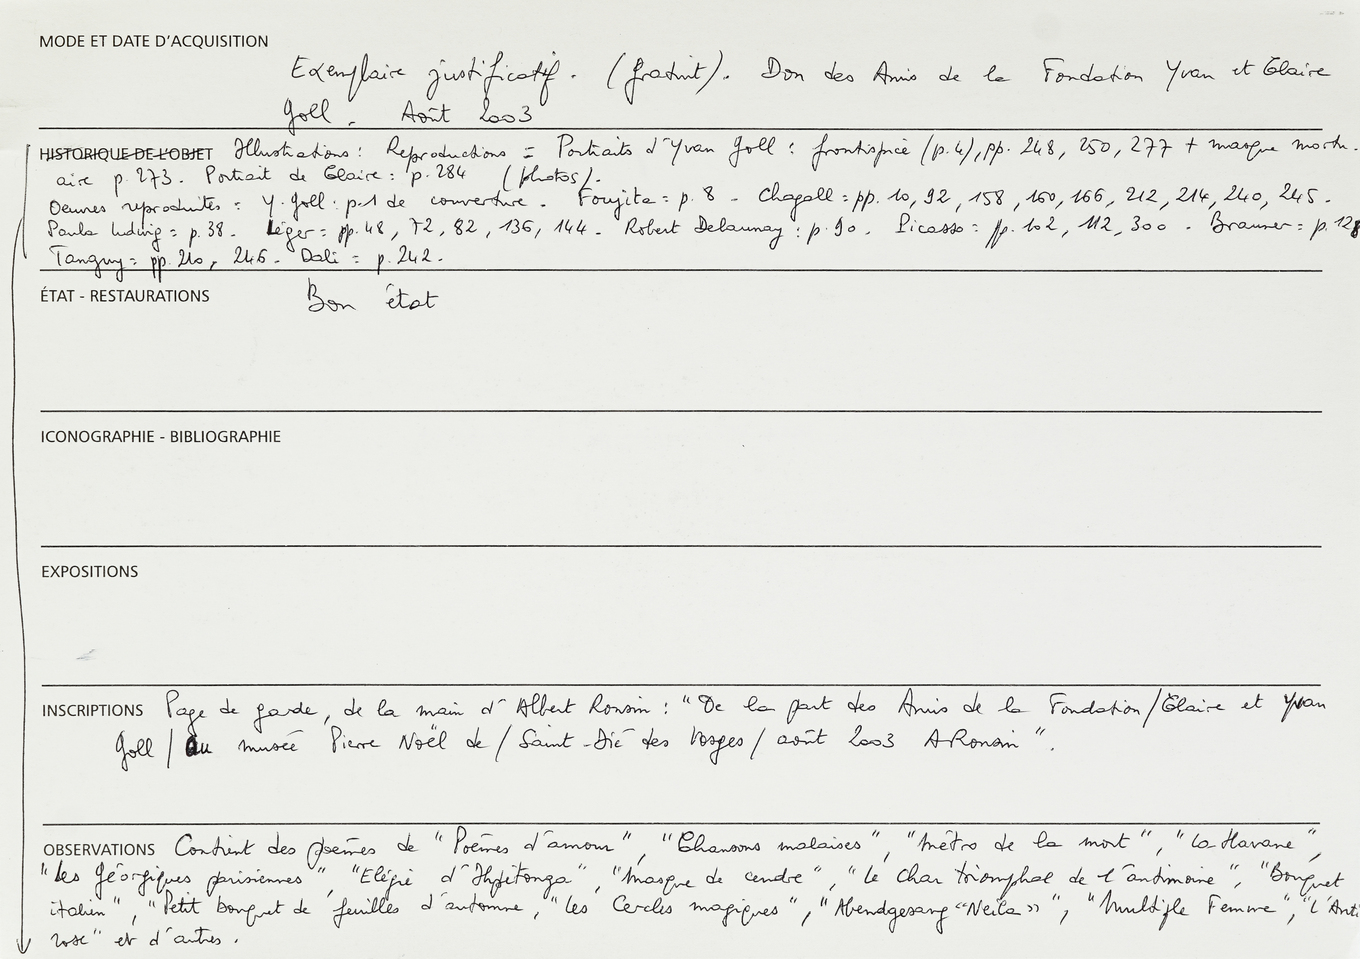 MODE ET DATE D'ACQUISITION
Exemplaire justificatif. (gratuit). Don des Amis de la Fondation Yvan et Claire
Goll. Août 2003
HISTORIQUE DE L'OBJET Illustrations : Reproductions = Portraits d'Yvan Goll : frontispice (p.4), pp. 248, 250, 277 + masque mortu-
aire p. 273. Portrait de Claire : p. 284 (photos).
Oeuvres reproduites = Y. Goll : p.1 de couverture. Foujita = p. 8 - Chagall = pp. 10, 92, 158, 160, 166, 212, 214, 240, 245.
Paula Ludwig = p. 38. Léger = pp. 48, 72, 82, 136, 144. Robert Delaunay : p. 90. Picasso = pp. 102, 112, 300. Brauner = p. 128
Tanguy = pp. 210, 246. Dali = p. 242.
ÉTAT - RESTAURATIONS Bon état
ICONOGRAPHIE - BIBLIOGRAPHIE
EXPOSITIONS
INSCRIPTIONS Page de garde, de la main d'Albert Ronsin : "De la part des Amis de la Fondation/Claire et Yvan
Goll / au musée Pierre Noël de / Saint-Dié des Vosges / août 2003 A Ronsin".
OBSERVATIONS Contient des poèmes de "Poèmes d'amour", "Chansons malaises", "Métro de la mort", "La Havane",
"Les Géorgiques parisiennes", "Elégie d'Ihpétonga", "Masque de cendre", "Le Char triomphal de l'antimoine", "Bouquet
italien", "Petit bouquet de feuilles d'automne, "Les Cercles magiques", "Abendgesang "Neila»", "Multiple Femme", "L'Anti
rose" et d'autres.